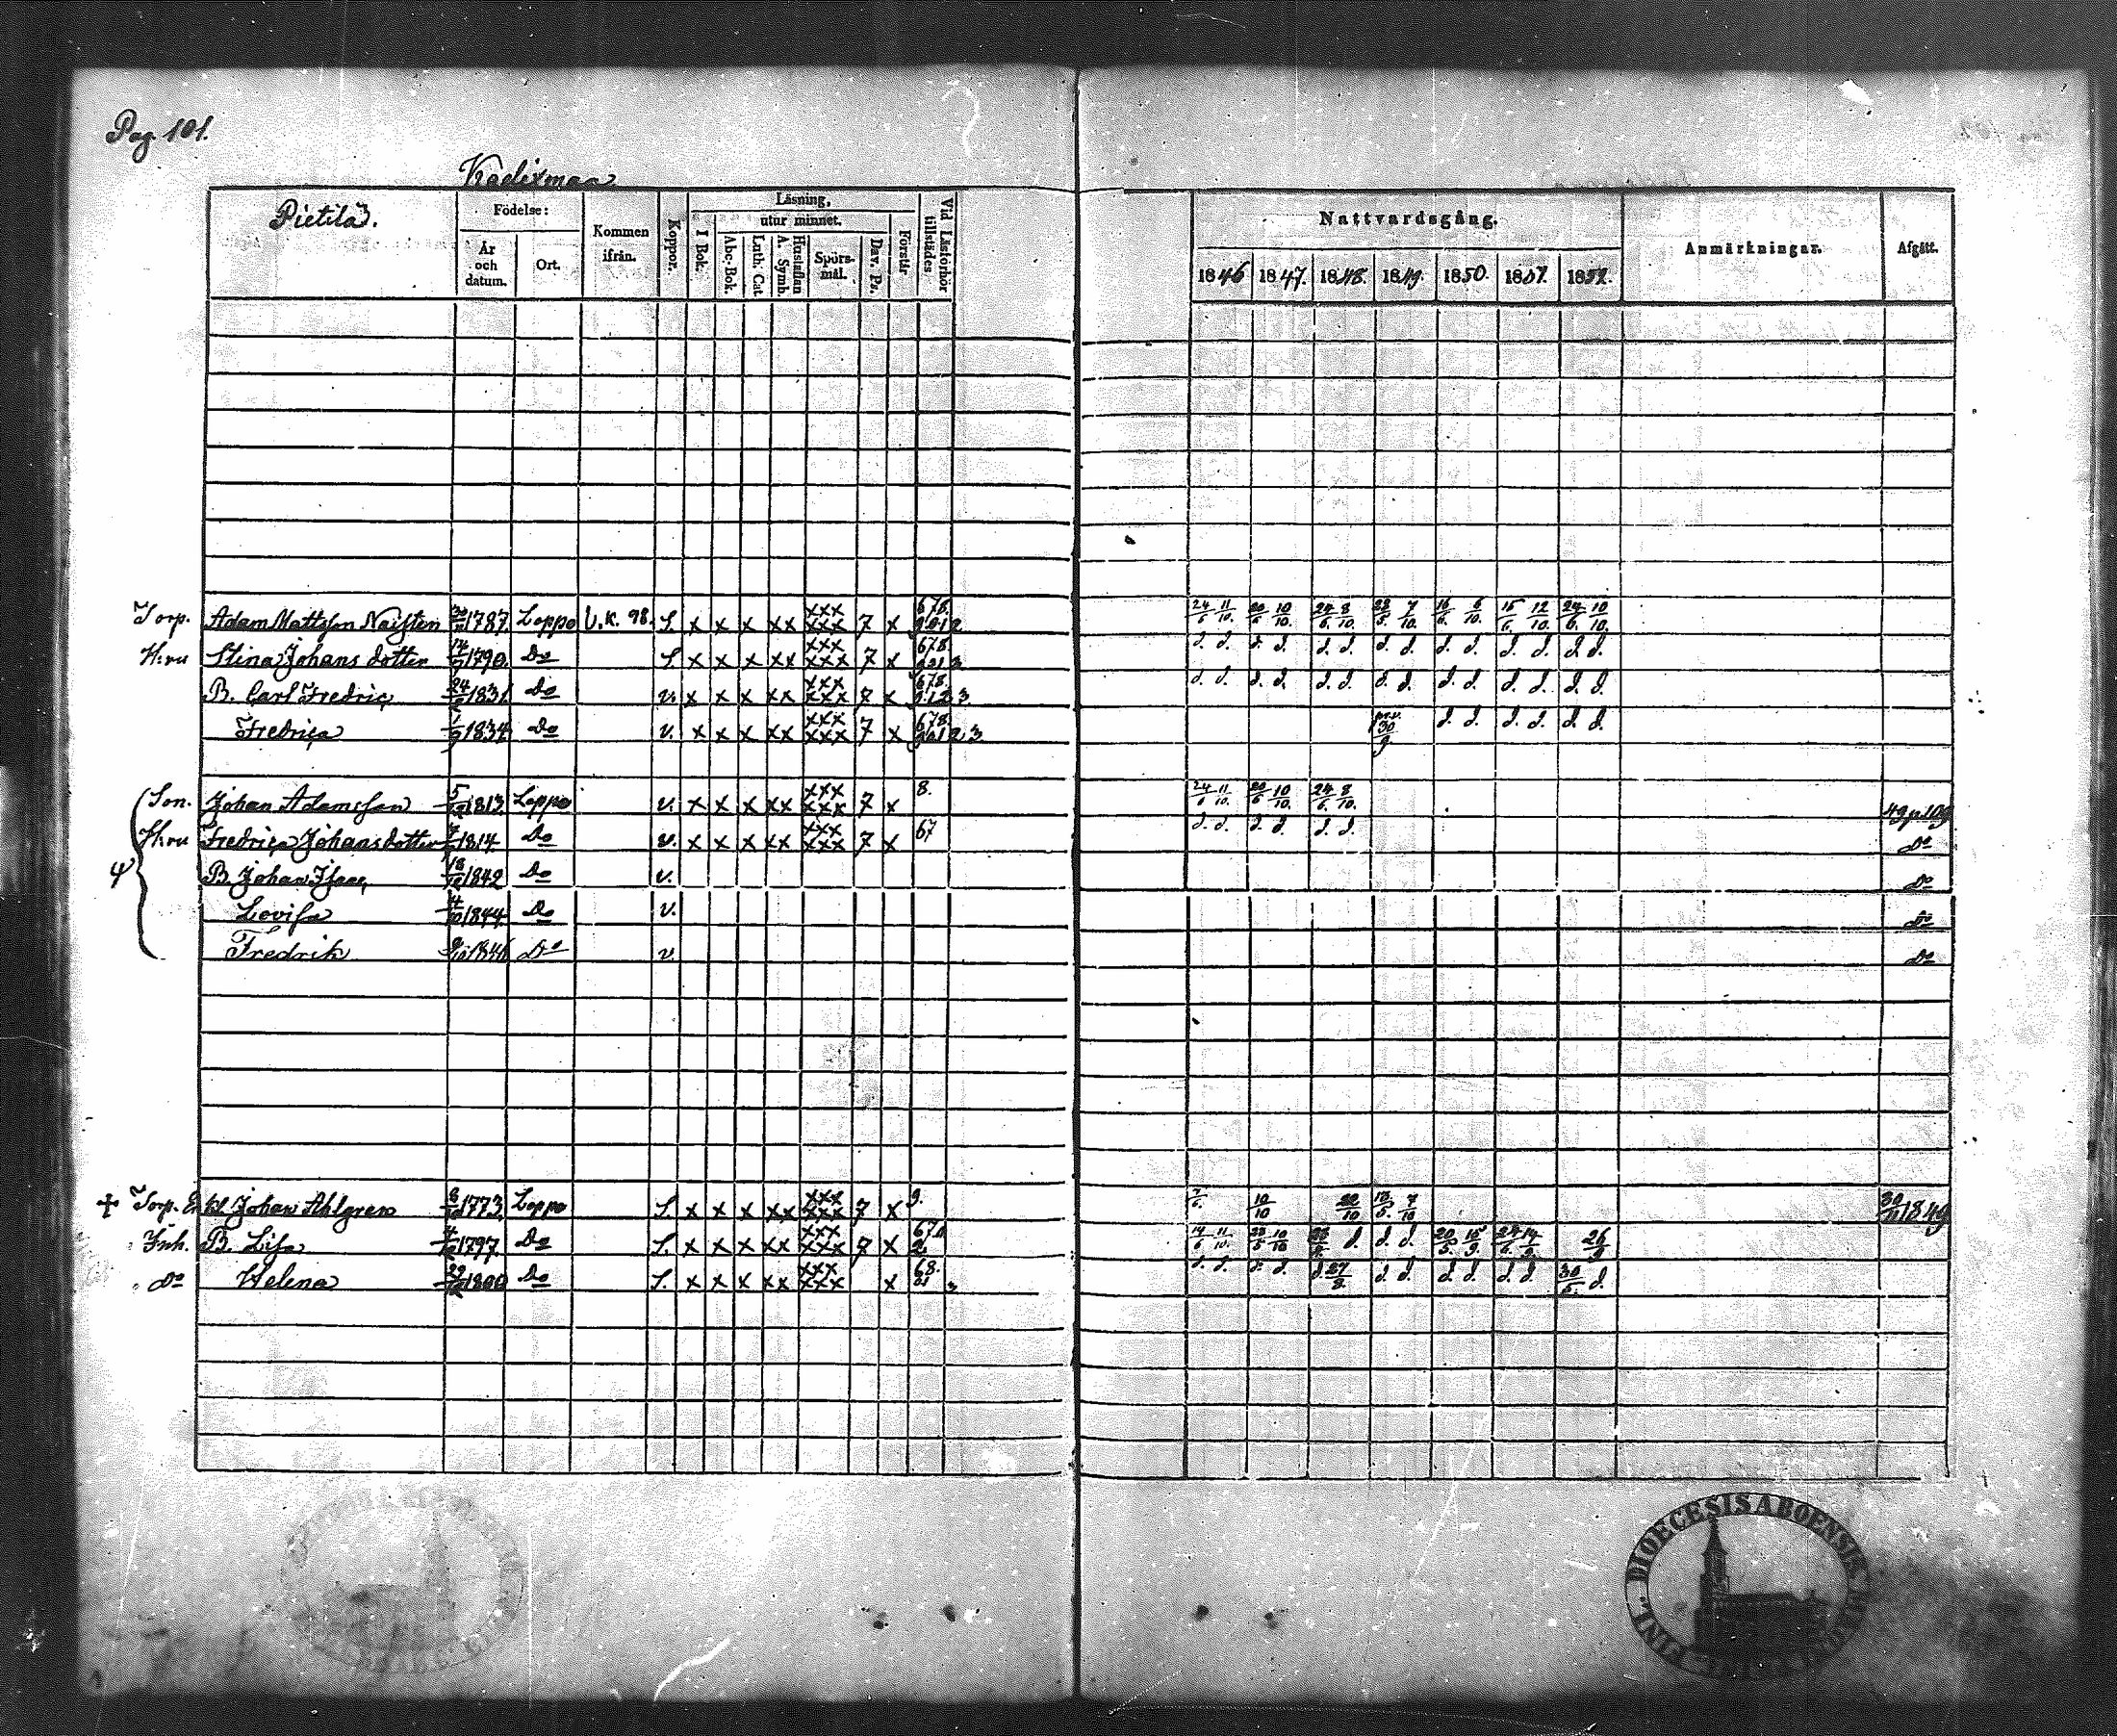 Pag. 101.
Kadixmaa
Pietilä.
Födelse:
År och datum.
Ort.
Kommen ifrån.
Koppor.
Läsning,
I Bok.
utur minnet.
Abc-Bok.
Luth. Cat.
A. Symb. Hustaflan
Spörs-mål.
Dav. Ps.
Förstår
Vid Läsförhör tillstädes
Nattvardsgång.
1846 1847. 1848. 1849. 1850. 1851. 1852.
Anmärkningar.
Afgått.
Torp. Adam Mattsson Naisten 1787. Loppo U.K. 98. S. x x x xx xxx xxx 7 x 24/6 11/10. 20/6 10/10. 24/6 8/10. 7/10. 16/6. 6/10. 15/6. 12/10. 24/6. 10/10.
H:ru Stina Johans dotter 1790. Do S. x x x xx xxx xxx 7 x 678. d. d. d. d. d. d. d. d. d. d. d. d. d. d.
B. Carl Fredric 1831. Do v. x x x xx xxx xxx 7 x 678. d. d. d. d. d. d. d. d. d. d. d. d. d. d.
Fredrica 1834. Do v. x x x xx xxx xxx 7 x 678. 30/9. d. d. d. d. d. d.
Son. Johan Adamsson 1813. Loppo v. x x x xx xxx xxx 7 x 8. 24/6 11/10. 20/6 10/10. 24/6. 8/10. 49 p 109
H:ru Fredrica Johansdotter 1814. Do v. x x x xx xxx xxx 7 x 67 d. d. d. d. d. d. Do
B. Johan Isaac 18/10 1842 Do v. Do
Lovisa 4/10 1844 Do v. Do
Fredrik 1846 Do v. Do
† Torp. Johan Ahlgren 1773. Loppo S. x x x xx xxx xxx 7 x 9. 7/6. 10/10 20/10 7/10 30/11 1849
Inh. B. Lisa 1797. Do S. x x x xx xxx xxx 7 x 14/6 11/10. 10/10 d. d. d. 20/5. 15/9. 24/6. 14/9.
Do Helena 1800 Do S. x x x xx xxx xxx x 68. 3 d. d. d. d. d. 27/8. d. d. d. d. d. d. 30/5. d.
DIOECESIS ABOENSIS